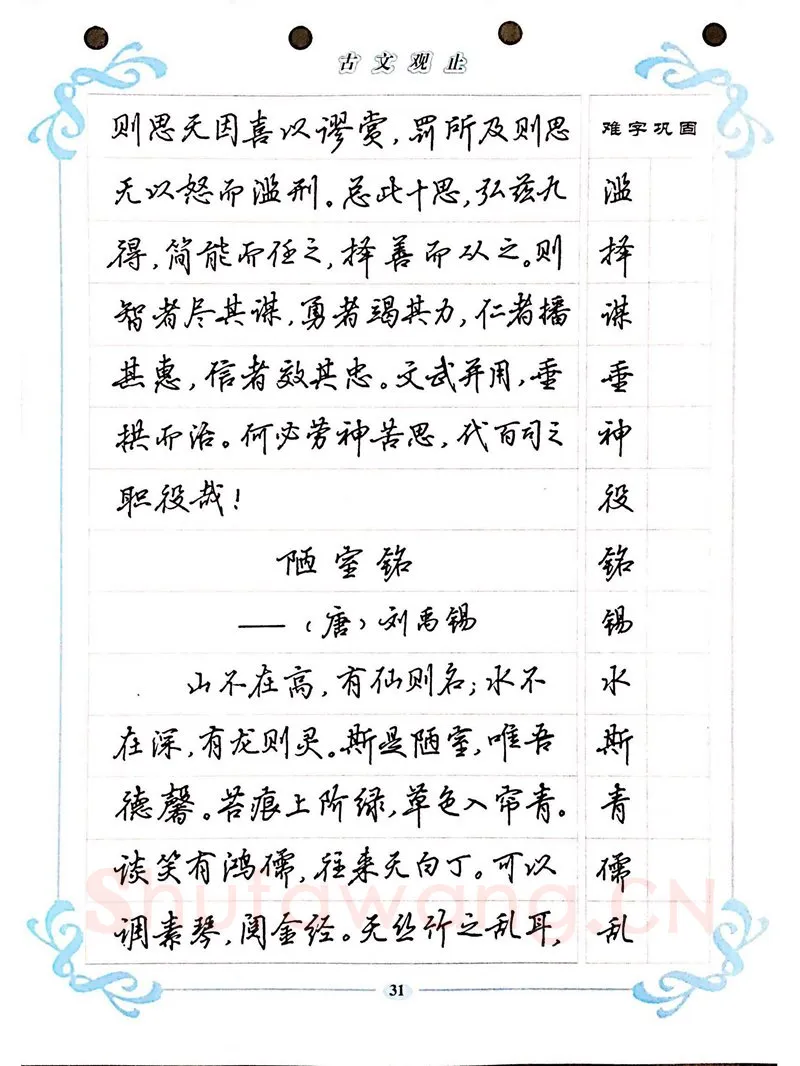 古文观止
则思无因喜以谬赏，罚所及则思
难字巩固
无以怒而滥刑。总此十思，弘兹九
滥
得，简能而任之，择善而从之。则
择
智者尽其谋，勇者竭其力，仁者播
谋
其惠，信者效其忠。文武并用，垂
垂
拱而治。何必劳神苦思，代百司之
神
职役哉！
役
陋室铭
铭
——（唐）刘禹锡
锡
山不在高，有仙则名；水不
水
在深，有龙则灵。斯是陋室，唯吾
斯
德馨。苔痕上阶绿，草色入帘青。
青
谈笑有鸿儒，往来无白丁。可以
儒
调素琴，阅金经。无丝竹之乱耳，
乱
Shufawang.CN
31